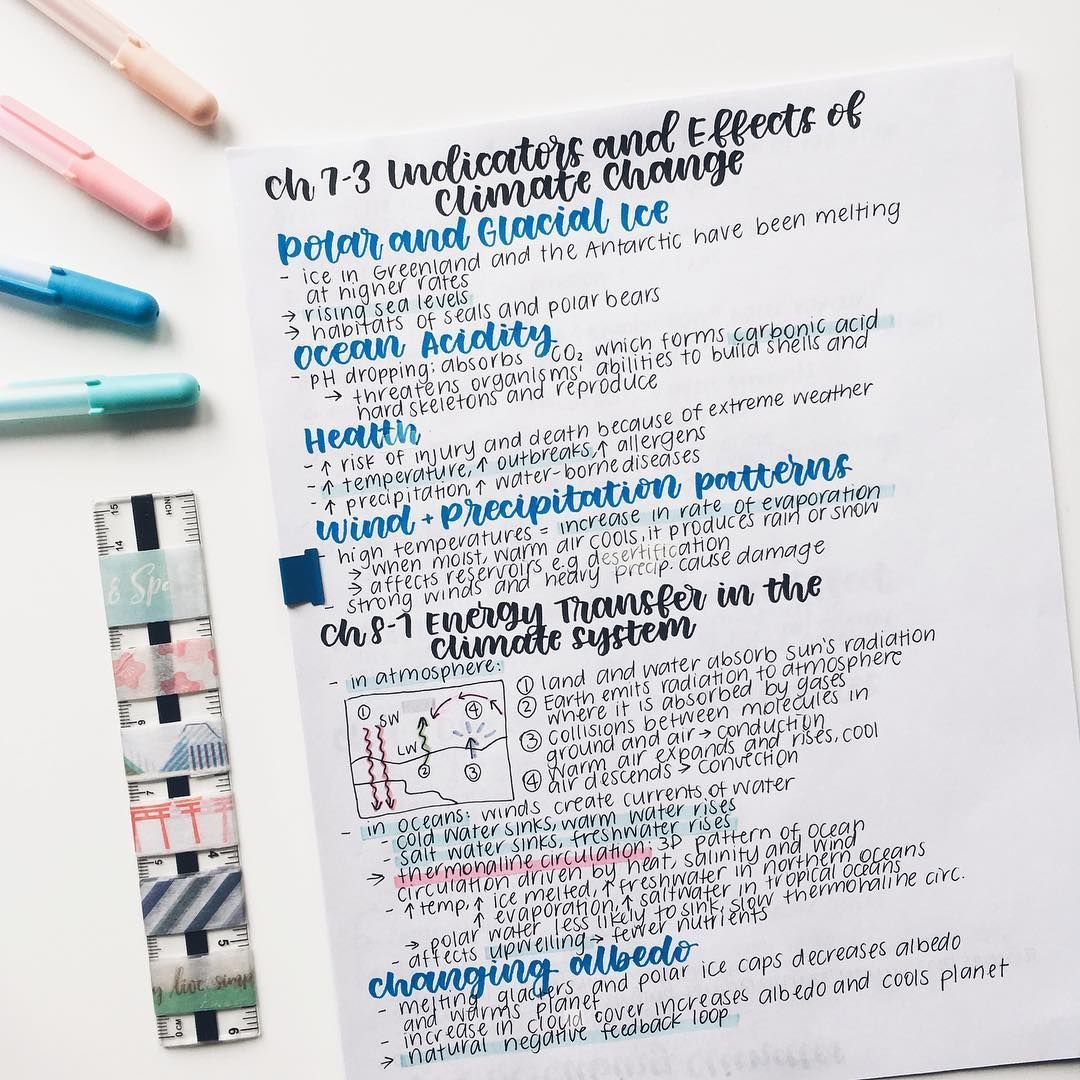 ch 7-3 Indicators and Effects of
climate change
Polar and Glacial Ice
- ice in Greenland and the Antarctic have been melting
at higher rates
→ rising sea levels
→ habitats of seals and polar bears
Ocean Acidity
- pH dropping: absorbs CO₂ which forms carbonic acid
→ threatens organisms' abilities to build shells and
hard skeletons and reproduce
Health
- ↑ risk of injury and death because of extreme weather
- ↑ temperature, ↑ outbreaks, ↑ allergens
- ↑ precipitation, ↑ water-borne diseases
Wind + Precipitation Patterns
- high temperatures = increase in rate of evaporation
→ when moist, warm air cools, it produces rain or snow
→ affects reservoirs e.g desertification
- strong winds and heavy precip. cause damage
ch 8-1 Energy Transfer in the
climate system
- in atmosphere:
① SW ④
LW
② ③
① land and water absorb sun's radiation
② Earth emits radiation to atmosphere
where it is absorbed by gases
③ collisions between molecules in
ground and air → conduction
④ warm air expands and rises, cool
air descends > convection
- in oceans: winds create currents of water
- cold water sinks, warm water rises
- salt water sinks, freshwater rises
→ thermohaline circulation: 3D pattern of ocean
circulation driven by heat, salinity and wind
- ↑ temp, ↑ ice melted, ↑ freshwater in northern oceans
↑ evaporation, ↑ saltwater in tropical oceans
→ polar water less likely to sink, slow thermohaline circ.
- affects upwelling → fewer nutrients
changing albedo
- melting glaciers and polar ice caps decreases albedo
and warms planet
- increase in cloud cover increases albedo and cools planet
→ natural negative feedback loop
15
INCH
14
& Spe
6
7
5
4
5
y live simp
0 CM
6